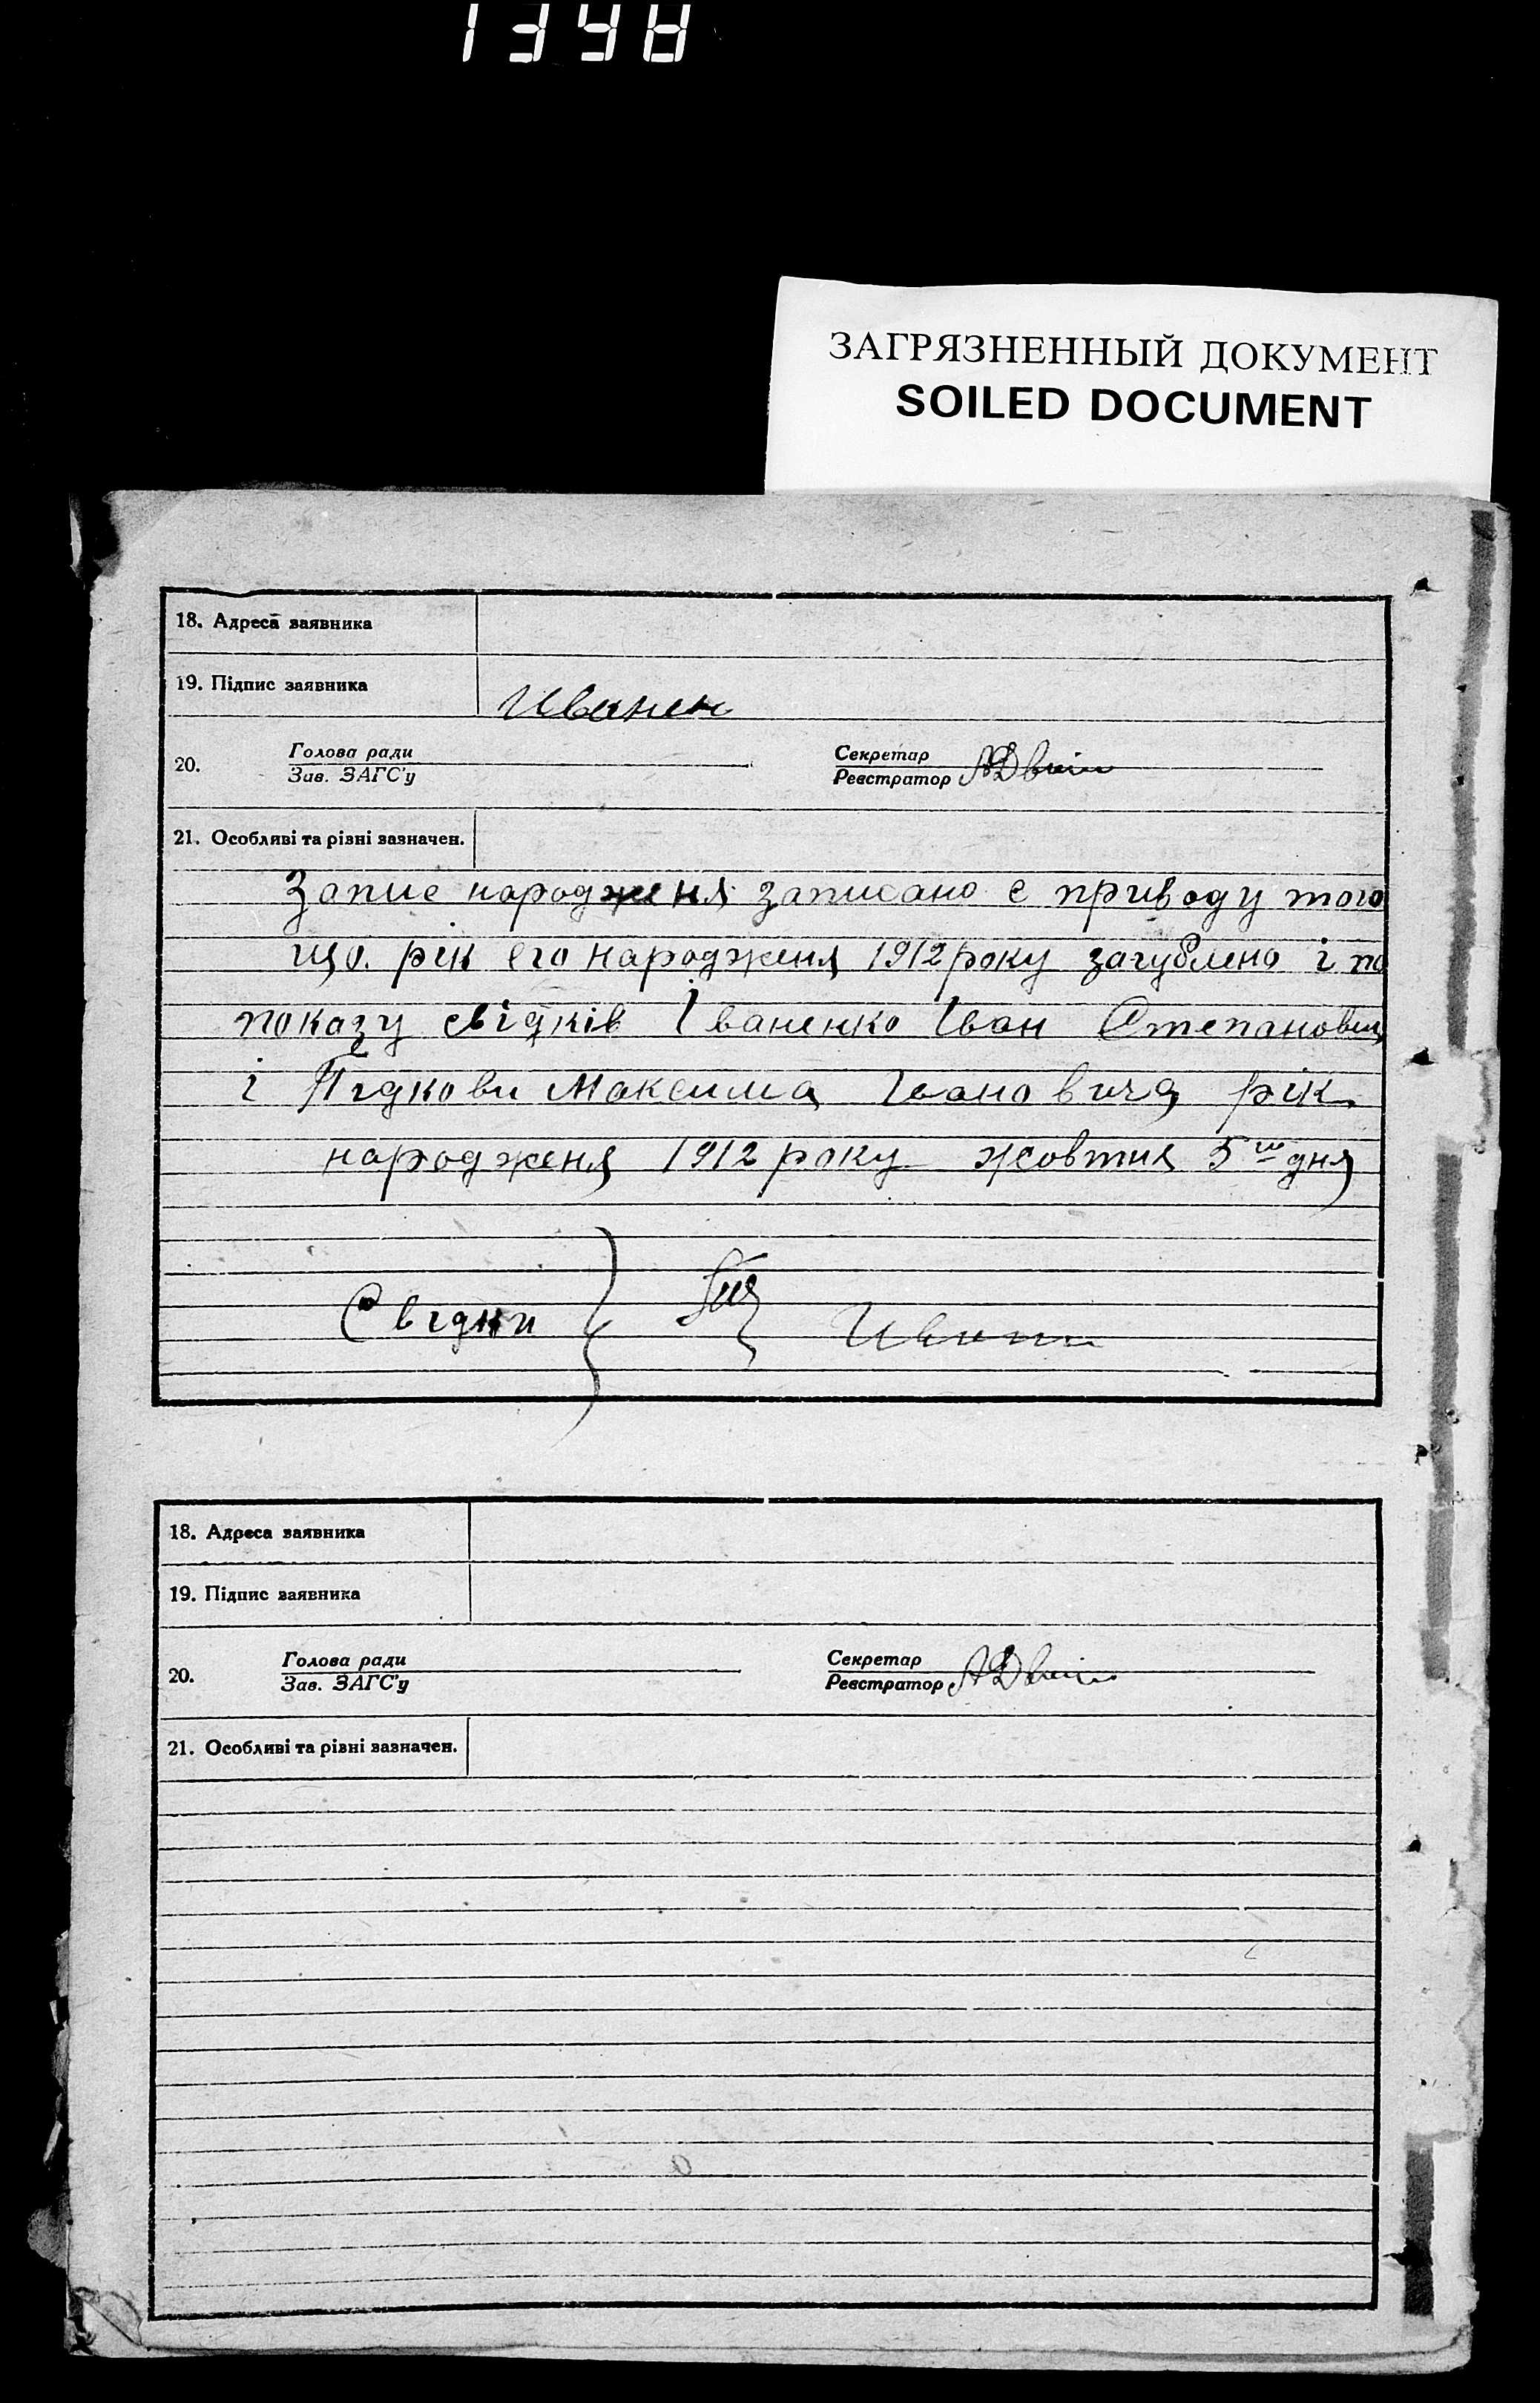 ЗАГРЯЗНЕННЫЙ ДОКУМЕНТ
SOILED DOCUMENT
18. Адреса заявника
19. Підпис заявника Иванен
20. Голова ради Секретар
Зав. ЗАГС'у Реєстратор
21. Особливі та рівні зазначен.
Запис народженя записано с приводу того
що. рік его народженя 1912 року загублено і по
показу свідків Іваненко Іван Степанович
і Підкови Максима Івановича рік
народженя 1912 року жовтня 5го дня
Свідки
18. Адреса заявника
19. Підпис заявника
20. Голова ради Секретар
Зав. ЗАГС'у Реєстратор
21. Особливі та рівні зазначен.